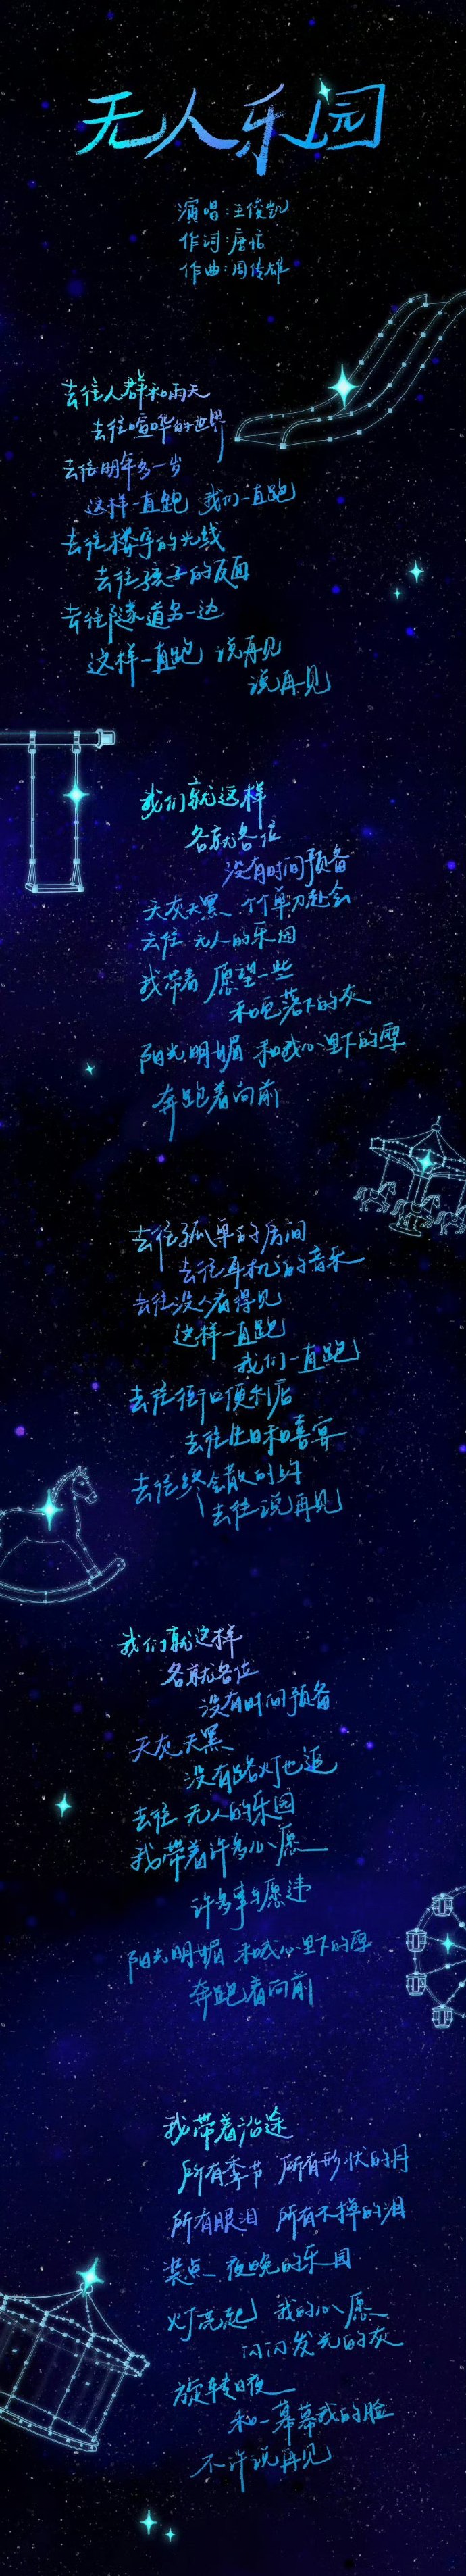 无人乐园
演唱:王俊凯
作词:唐恬
作曲:周传雄
去往人群和雨天
去往喧哗的世界
去往明年多一岁
这样一直跑 我们一直跑
去往楼宇的光线
去往孩子的反面
去往隧道另一边
这样一直跑 说再见
说再见
我们就这样
各就各位
没有时间预备
天灰天黑 个个单刀赴会
去往 无人的乐园
我带着 愿望一些
和跑落下的灰
阳光明媚 和我心里下的雪
奔跑着向前
去往孤单的房间
去往耳机的音乐
去往没人看得见
这样一直跑
我们一直跑
去往街口便利店
去往生日和喜宴
去往终会散的约
去往说再见
我们就这样
各就各位
没有时间预备
天灰天黑
没有路灯也追
去往 无人的乐园
我带着许多心愿
许多事与愿违
阳光明媚 和我心里下的雪
奔跑着向前
我带着沿途
所有季节 所有形状的月
所有眼泪 所有不掉的泪
装点 夜晚的乐园
灯亮起 我的心愿
闪闪发光的灰
旋转日夜
和一幕幕我的脸
不许说再见